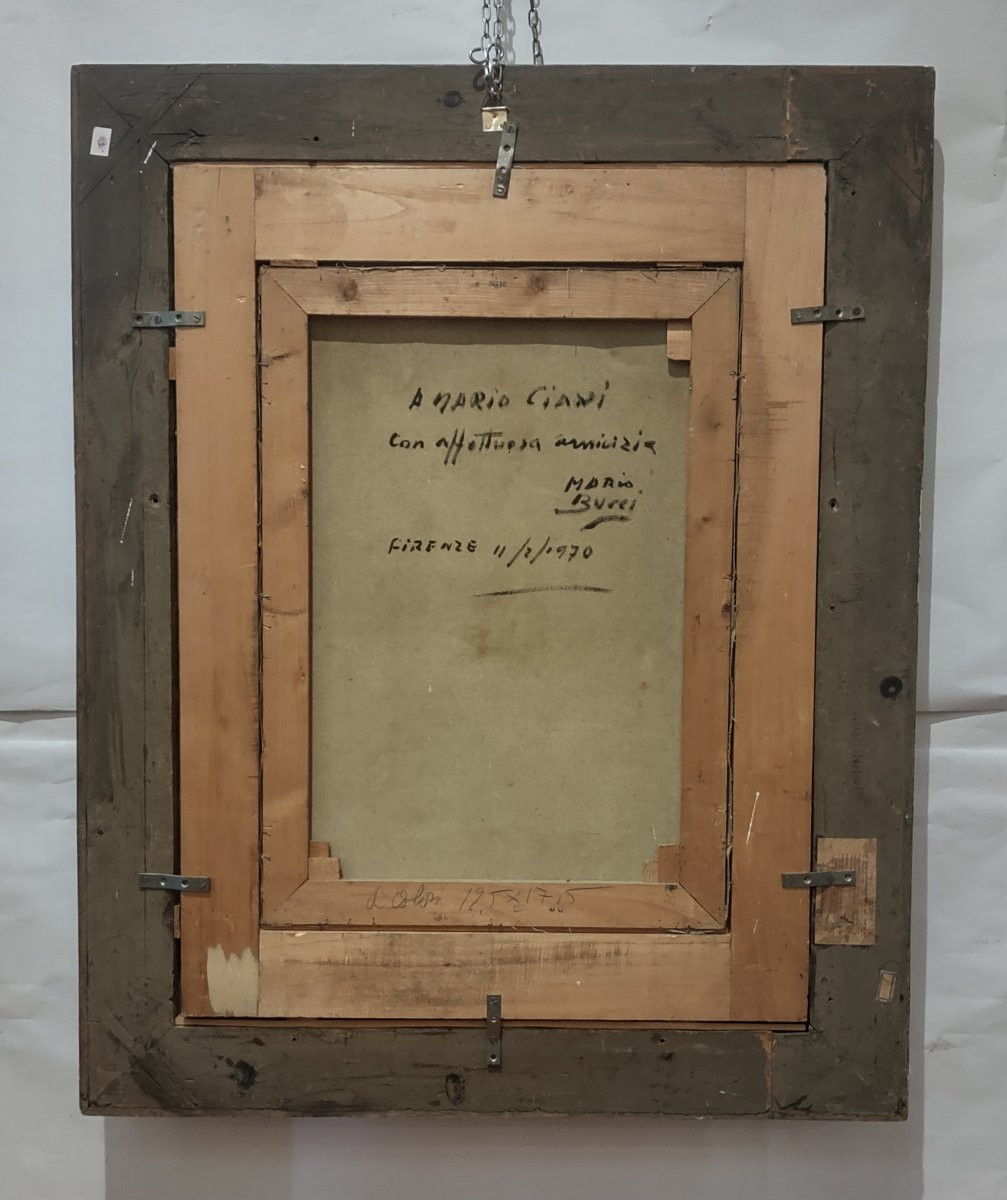 A MARIO CIANI
Con affettuosa amicizia
MARIO
BUCCI
FIRENZE 11/2/1970
a colori 12,5 x 17,5